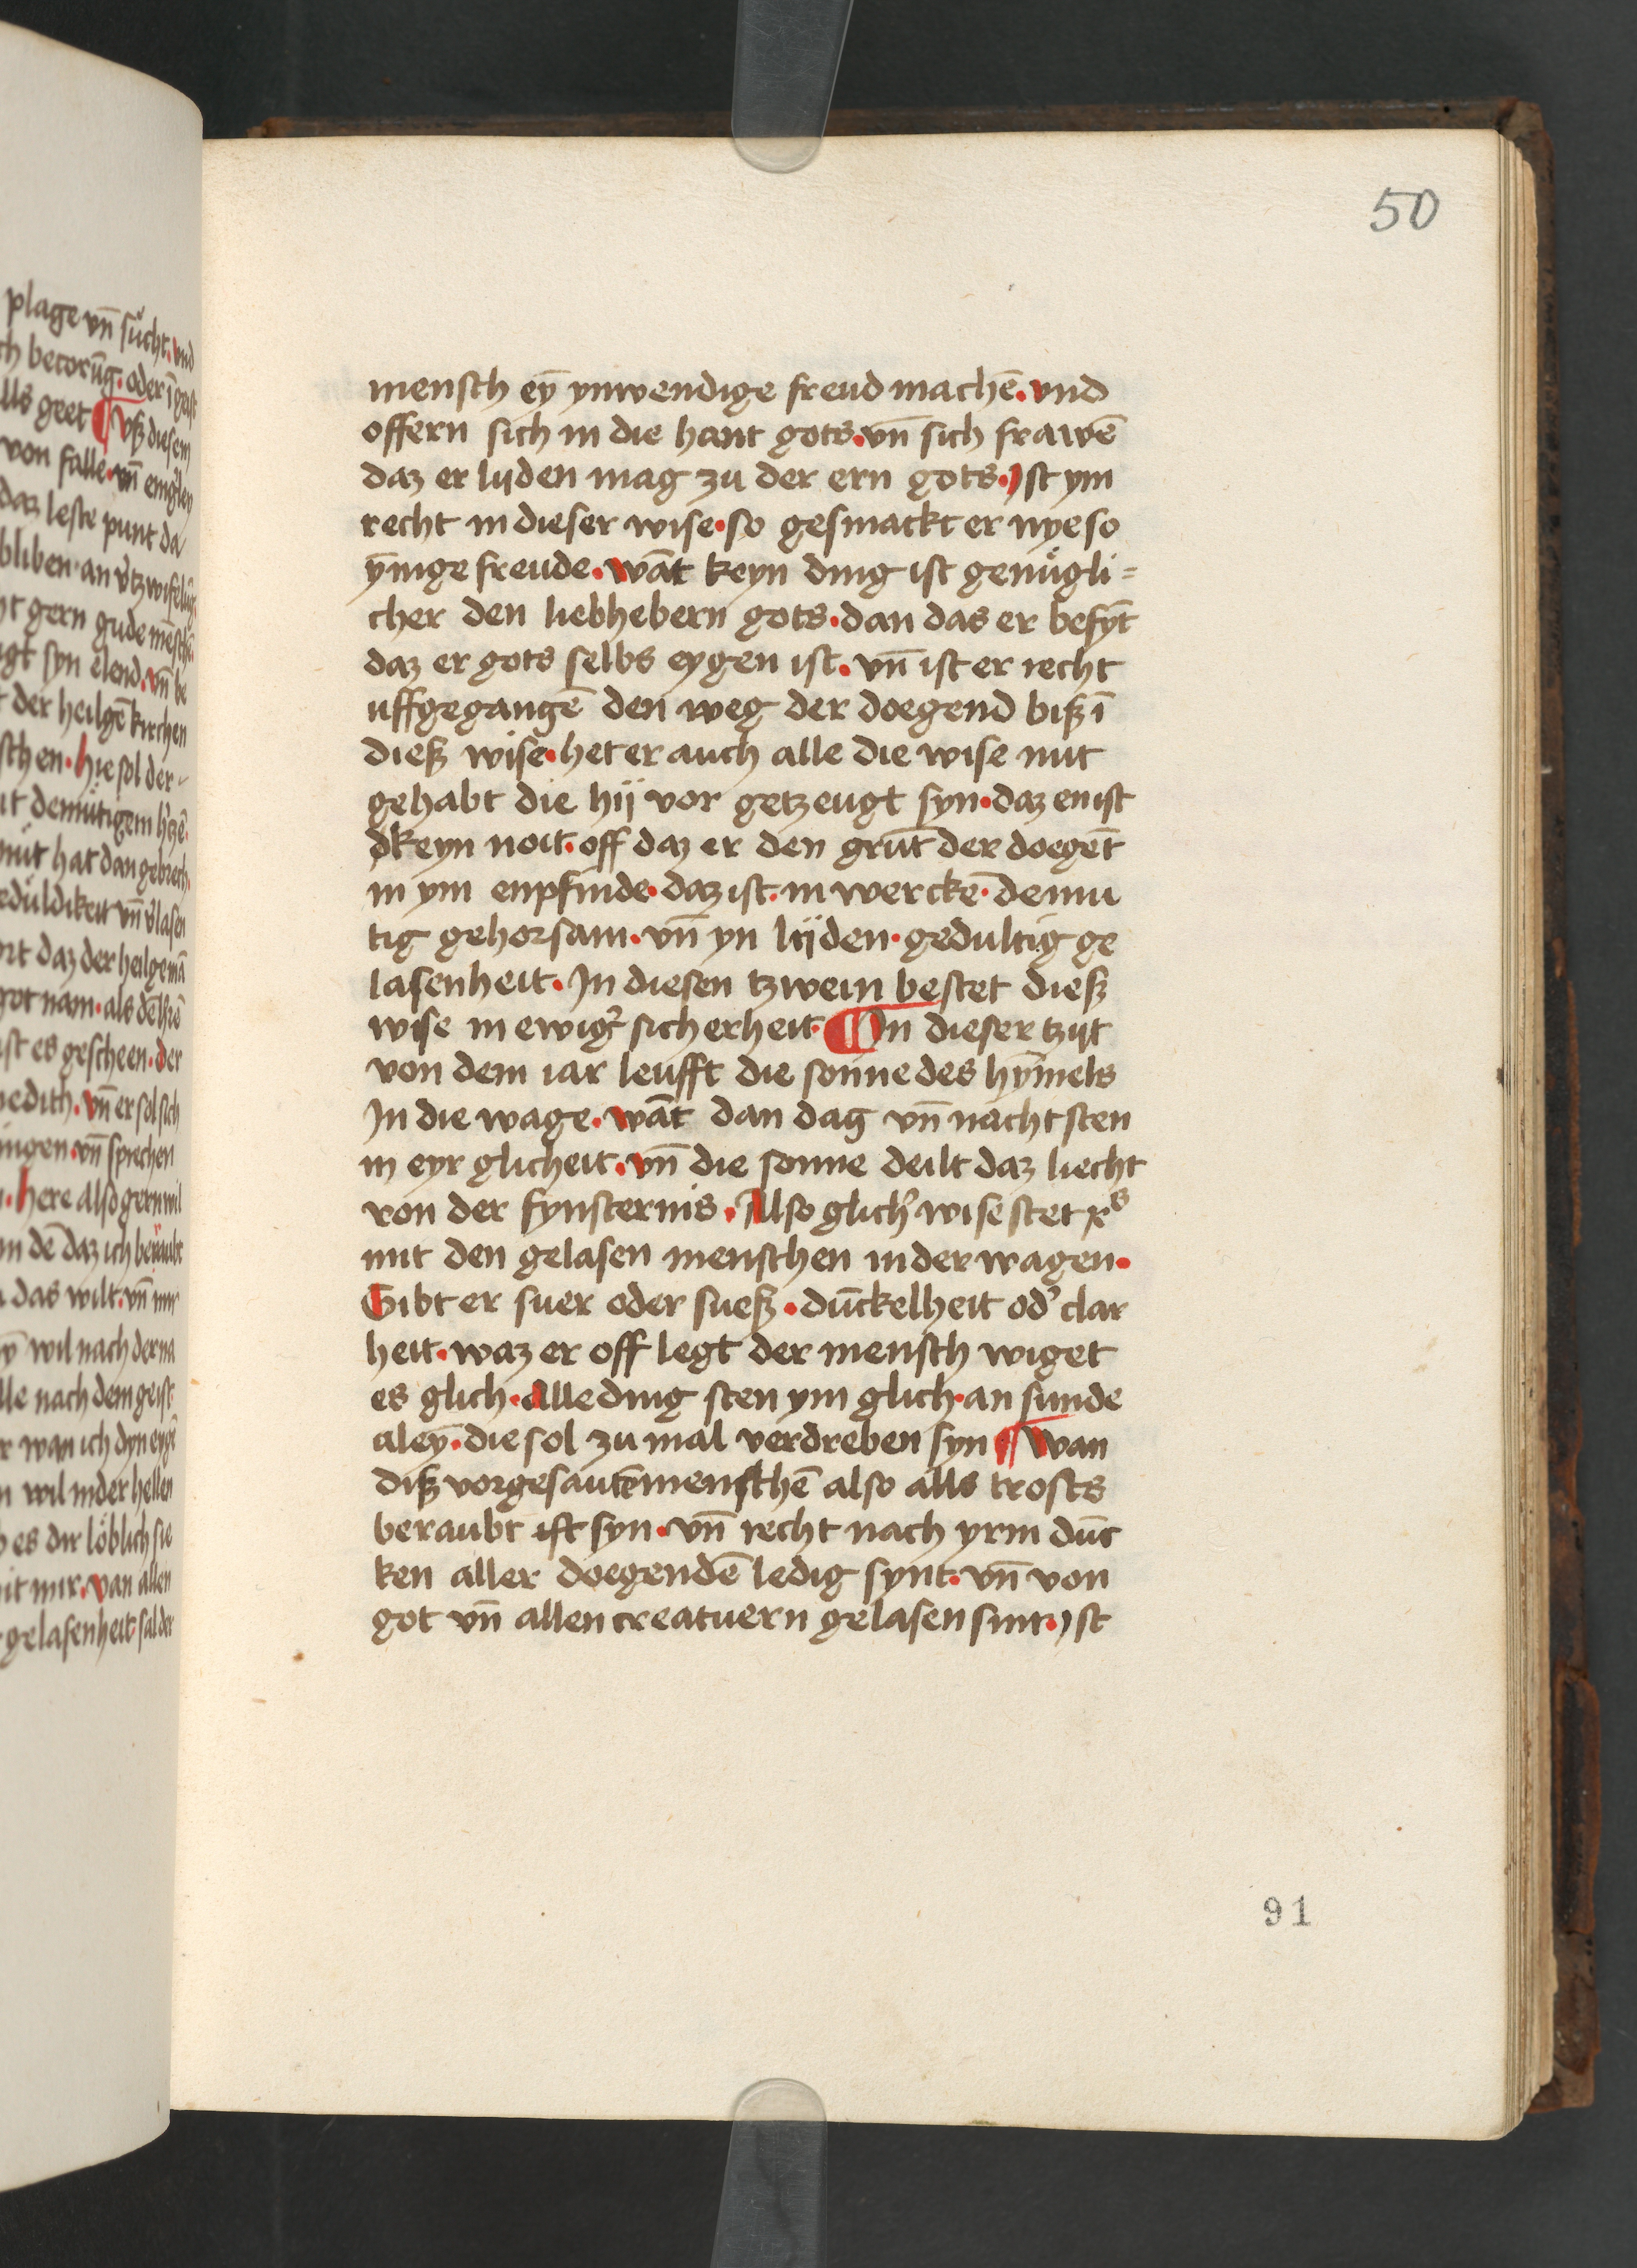 50
mensch ey̅ ynwendige freud mache̅. vnd
offern sich in die hant gots. vn̅ sich frawe̅
daz er lyden mag zu der ern gots. Ist ym
recht in dieser wise. so gesmackt er nye so
y̅nige freude. wa̅t keyn ding ist genuͦgli=
cher den liebhebern gots. dan das er befy̅t
daz er gots selbs eygen ist. vn̅ ist er recht
uffgegange̅ den weg der doegend biß i̅
dieß wise. het er auch alle die wise nit
gehabt die hij vor getzeugt syn. daz enist
dkeyn noit. off daz er den gru̅t der doege̅t
in ym enpfinde. daz ist. in wercke̅. demu
tig gehorsam. vn̅ yn lijden. gedultig ge
lasenheit. In diesen tzwein bestet dieß
wise in ewigͬ sicherheit. ¶ In dieser tzijt
von dem iar leufft die sonne des hy̅mels
In die wage. wa̅t dan dag vn̅ nacht sten
in eyr glicheit. vn̅ die sonne deilt daz liecht
von der fynsternis. Also glich' wise stet xͦs
mit den gelasen menschen in der wagen.
Gibt er suer oder sueß. du̅ckelheit od' clar
heit. waz er off legt der mensch wiget
es glich. alle ding sten ym glich. an sunde
aley̅. die sol zu mal verdreben syn ¶ Wan
diß vorgesaute̅ mensche̅ also alls trosts
beraubt ist syn. vn̅ recht nach yrm du̅c
ken aller doegende̅ ledig synt. vn̅ von
got vn̅ allen creatuern gelasen sint. Ist
91
plage vn̅ sucht. vnd
ch becoru̅g. oder i̅ geist
lls geet ¶ Vß diesem
von falle. vn̅
daz leste punt da
bliben. an
ht gern gude
igt syn elend. vn̅ be
der heilge̅ kirchen
schen. hie sol der
it demutigem
mut hat dan gebrech
vn̅
ort daz der heilge ma̅
got nam. als
ist es gescheen. der
vn̅ er sol sich
ingen. vn̅ sprechen
here also gern wil
in de̅ daz ich beraubt
das wilt. vn̅ mir
wil nach der na
lle nach dem geist
r wan ich dyn
wil in der hellen
es dir löblich sie
it mir. van allen
gelasenheit. sal der